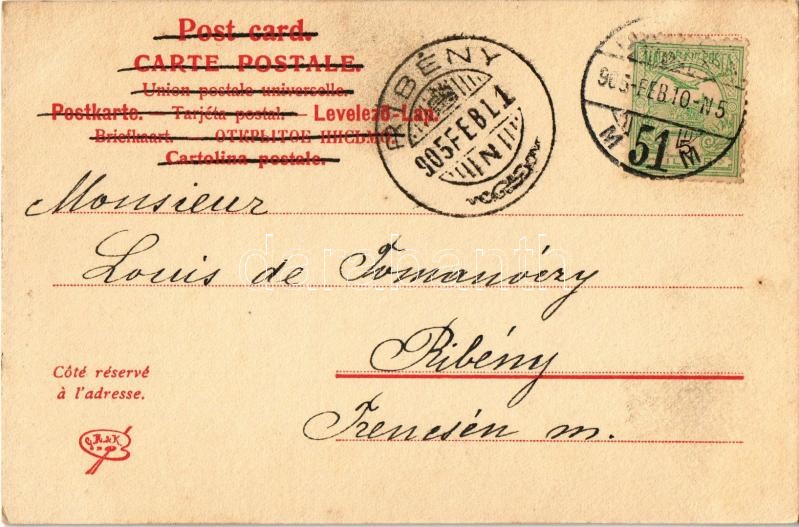 Post card.
CARTE POSTALE.
Union postale universelle.
Postkarte. — Tarjéta postal. — Levelező-Lap.
Briefkaart. — ОТКРЫТОЕ ПИСЬМО
Cartolina postale.
RIBÉNY
905 FEB 1 1
N
905-FEB.10-N5
M 51 M
Monsieur
Louis de Tomanóczy
Ribény
Trencsén m.
Côté réservé
à l'adresse.
darabanth